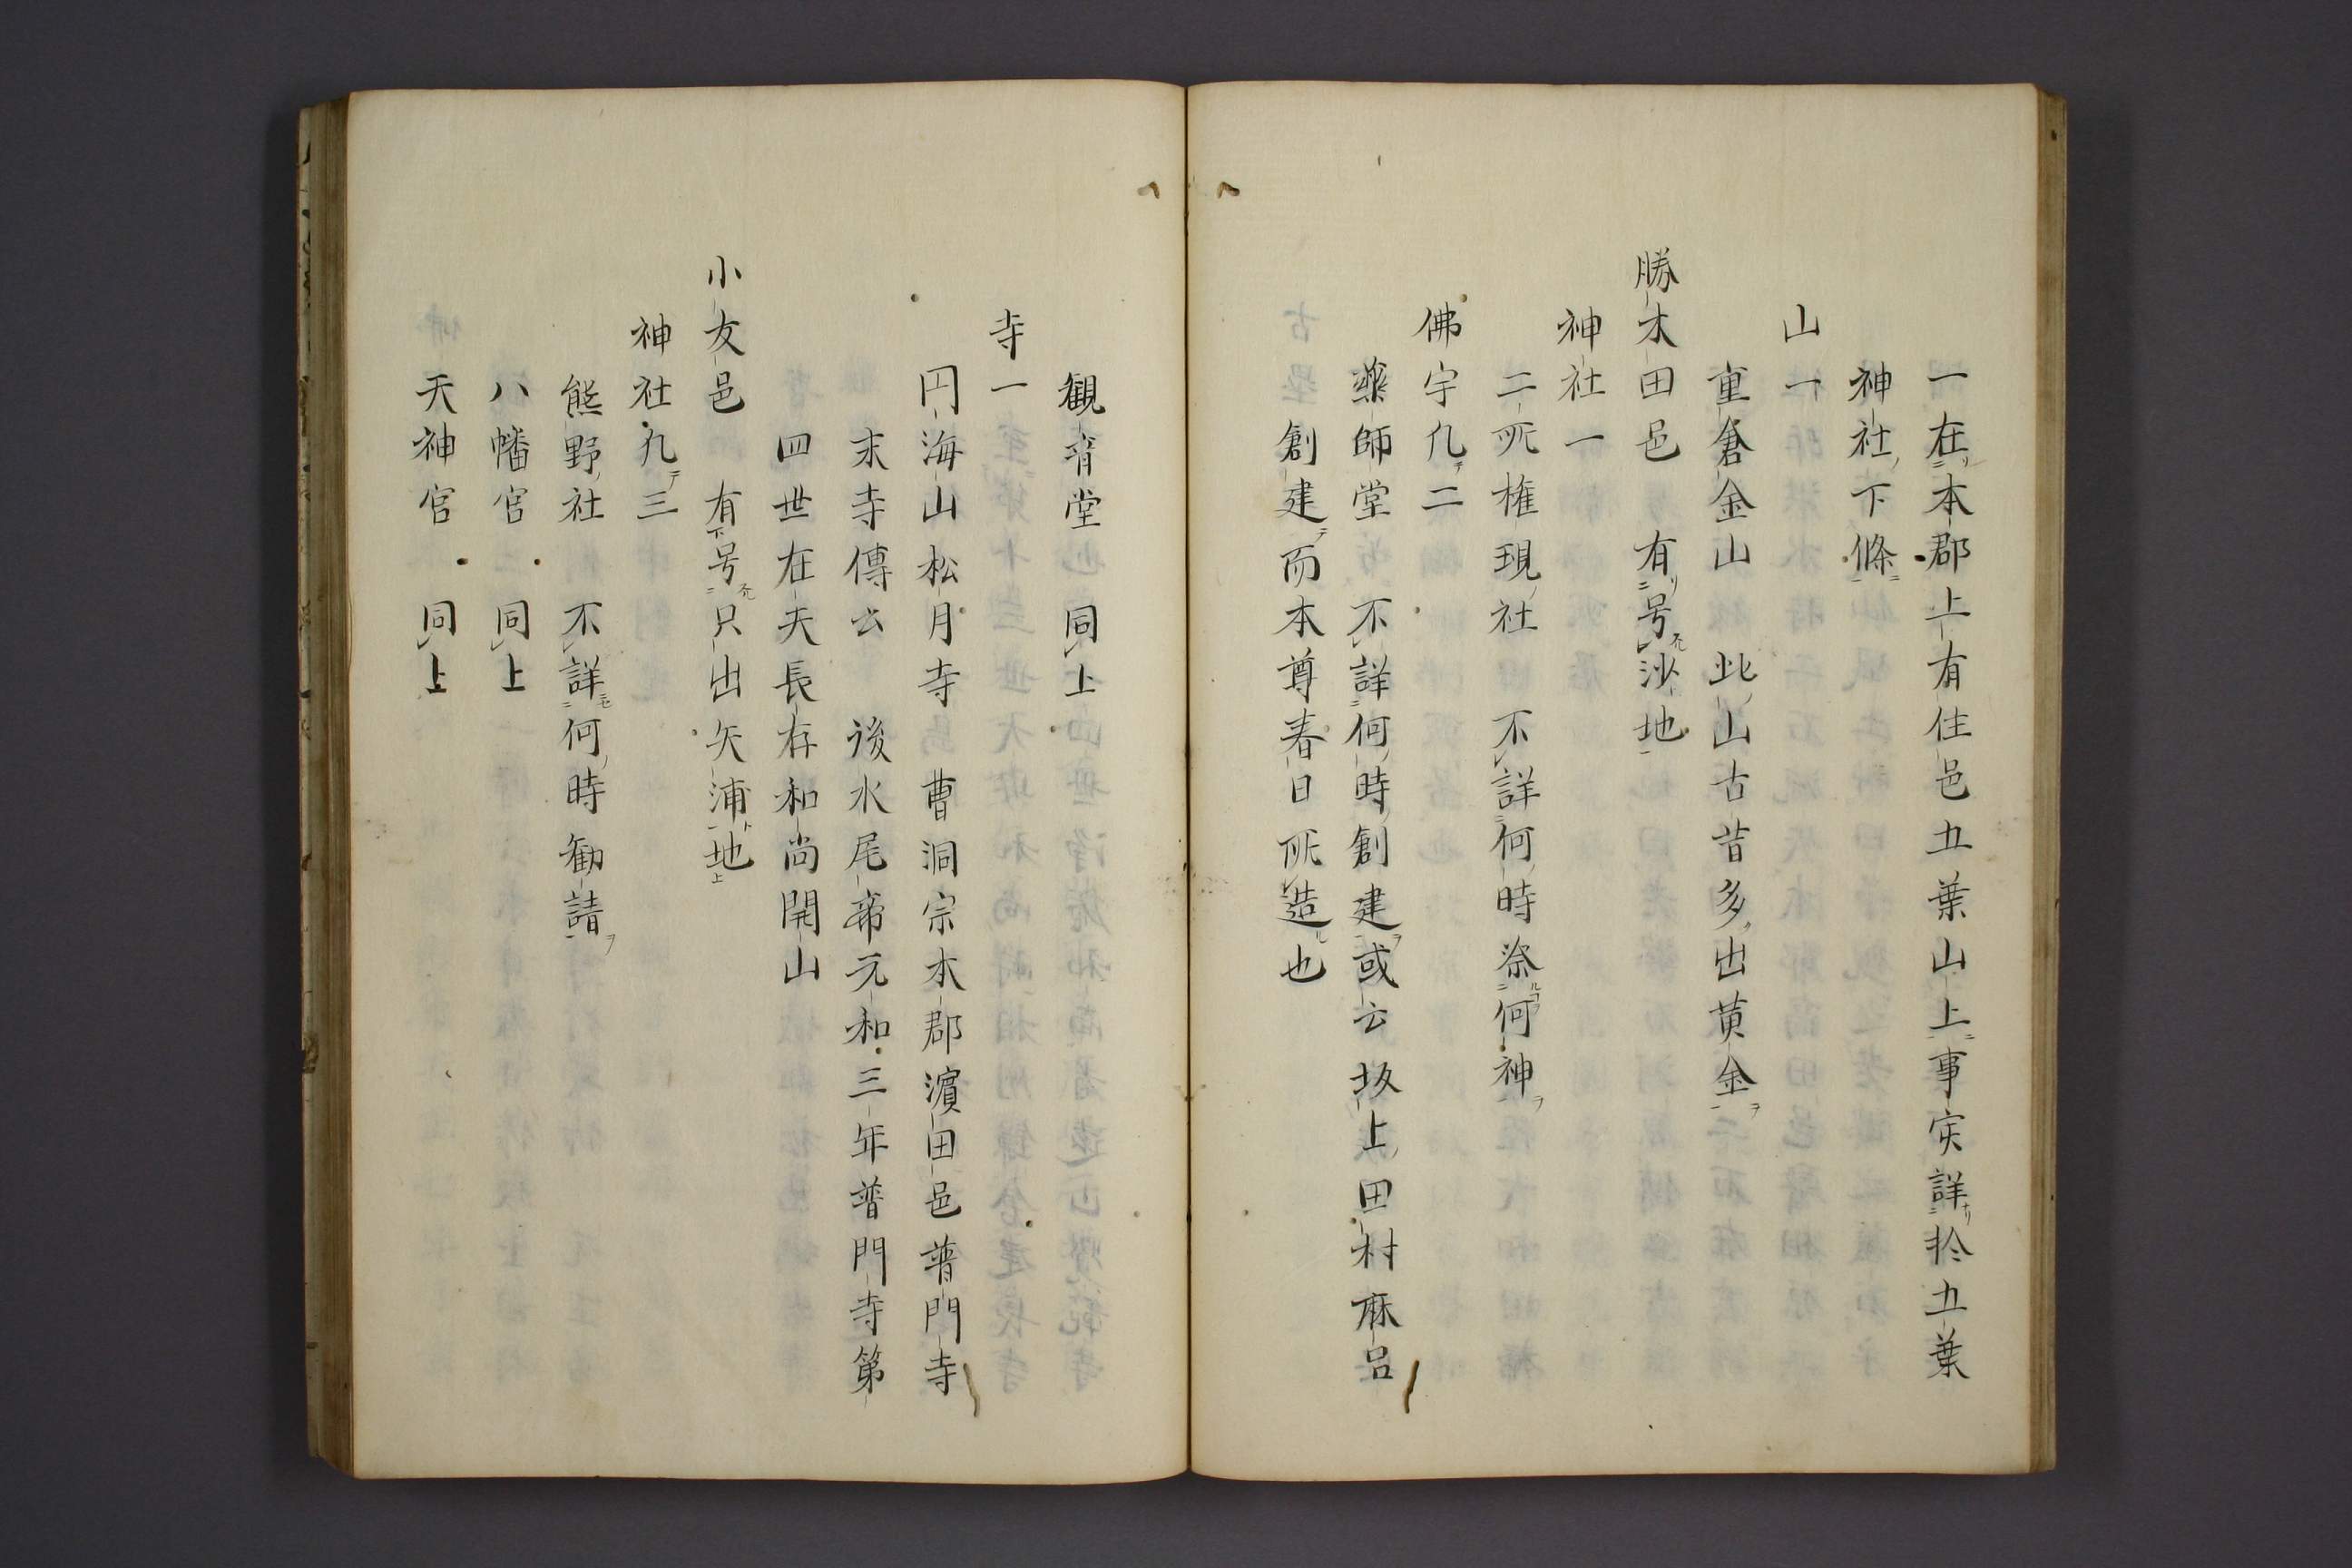 一在本郡上有住邑五葉山上事実詳於五葉
神社下條
山一
重倉金山　此山古昔多出黄金
勝木田邑　有号沙地
神社一
二所権現社　不詳何時祭何神
佛宇凡二
薬師堂　不詳何時創建或云坂上田村麻呂
創建而本尊春日所造也
観音堂　同上
寺一
円海山松月寺　曹洞宗本郡濱田邑普門寺
末寺傳云　後水尾帝元和三年普門寺第
四世在天長存和尚開山
小友邑　有号只出矢浦地
神社凡三
熊野社　不詳何時勧請
八幡宮　同上
天神宮　同上